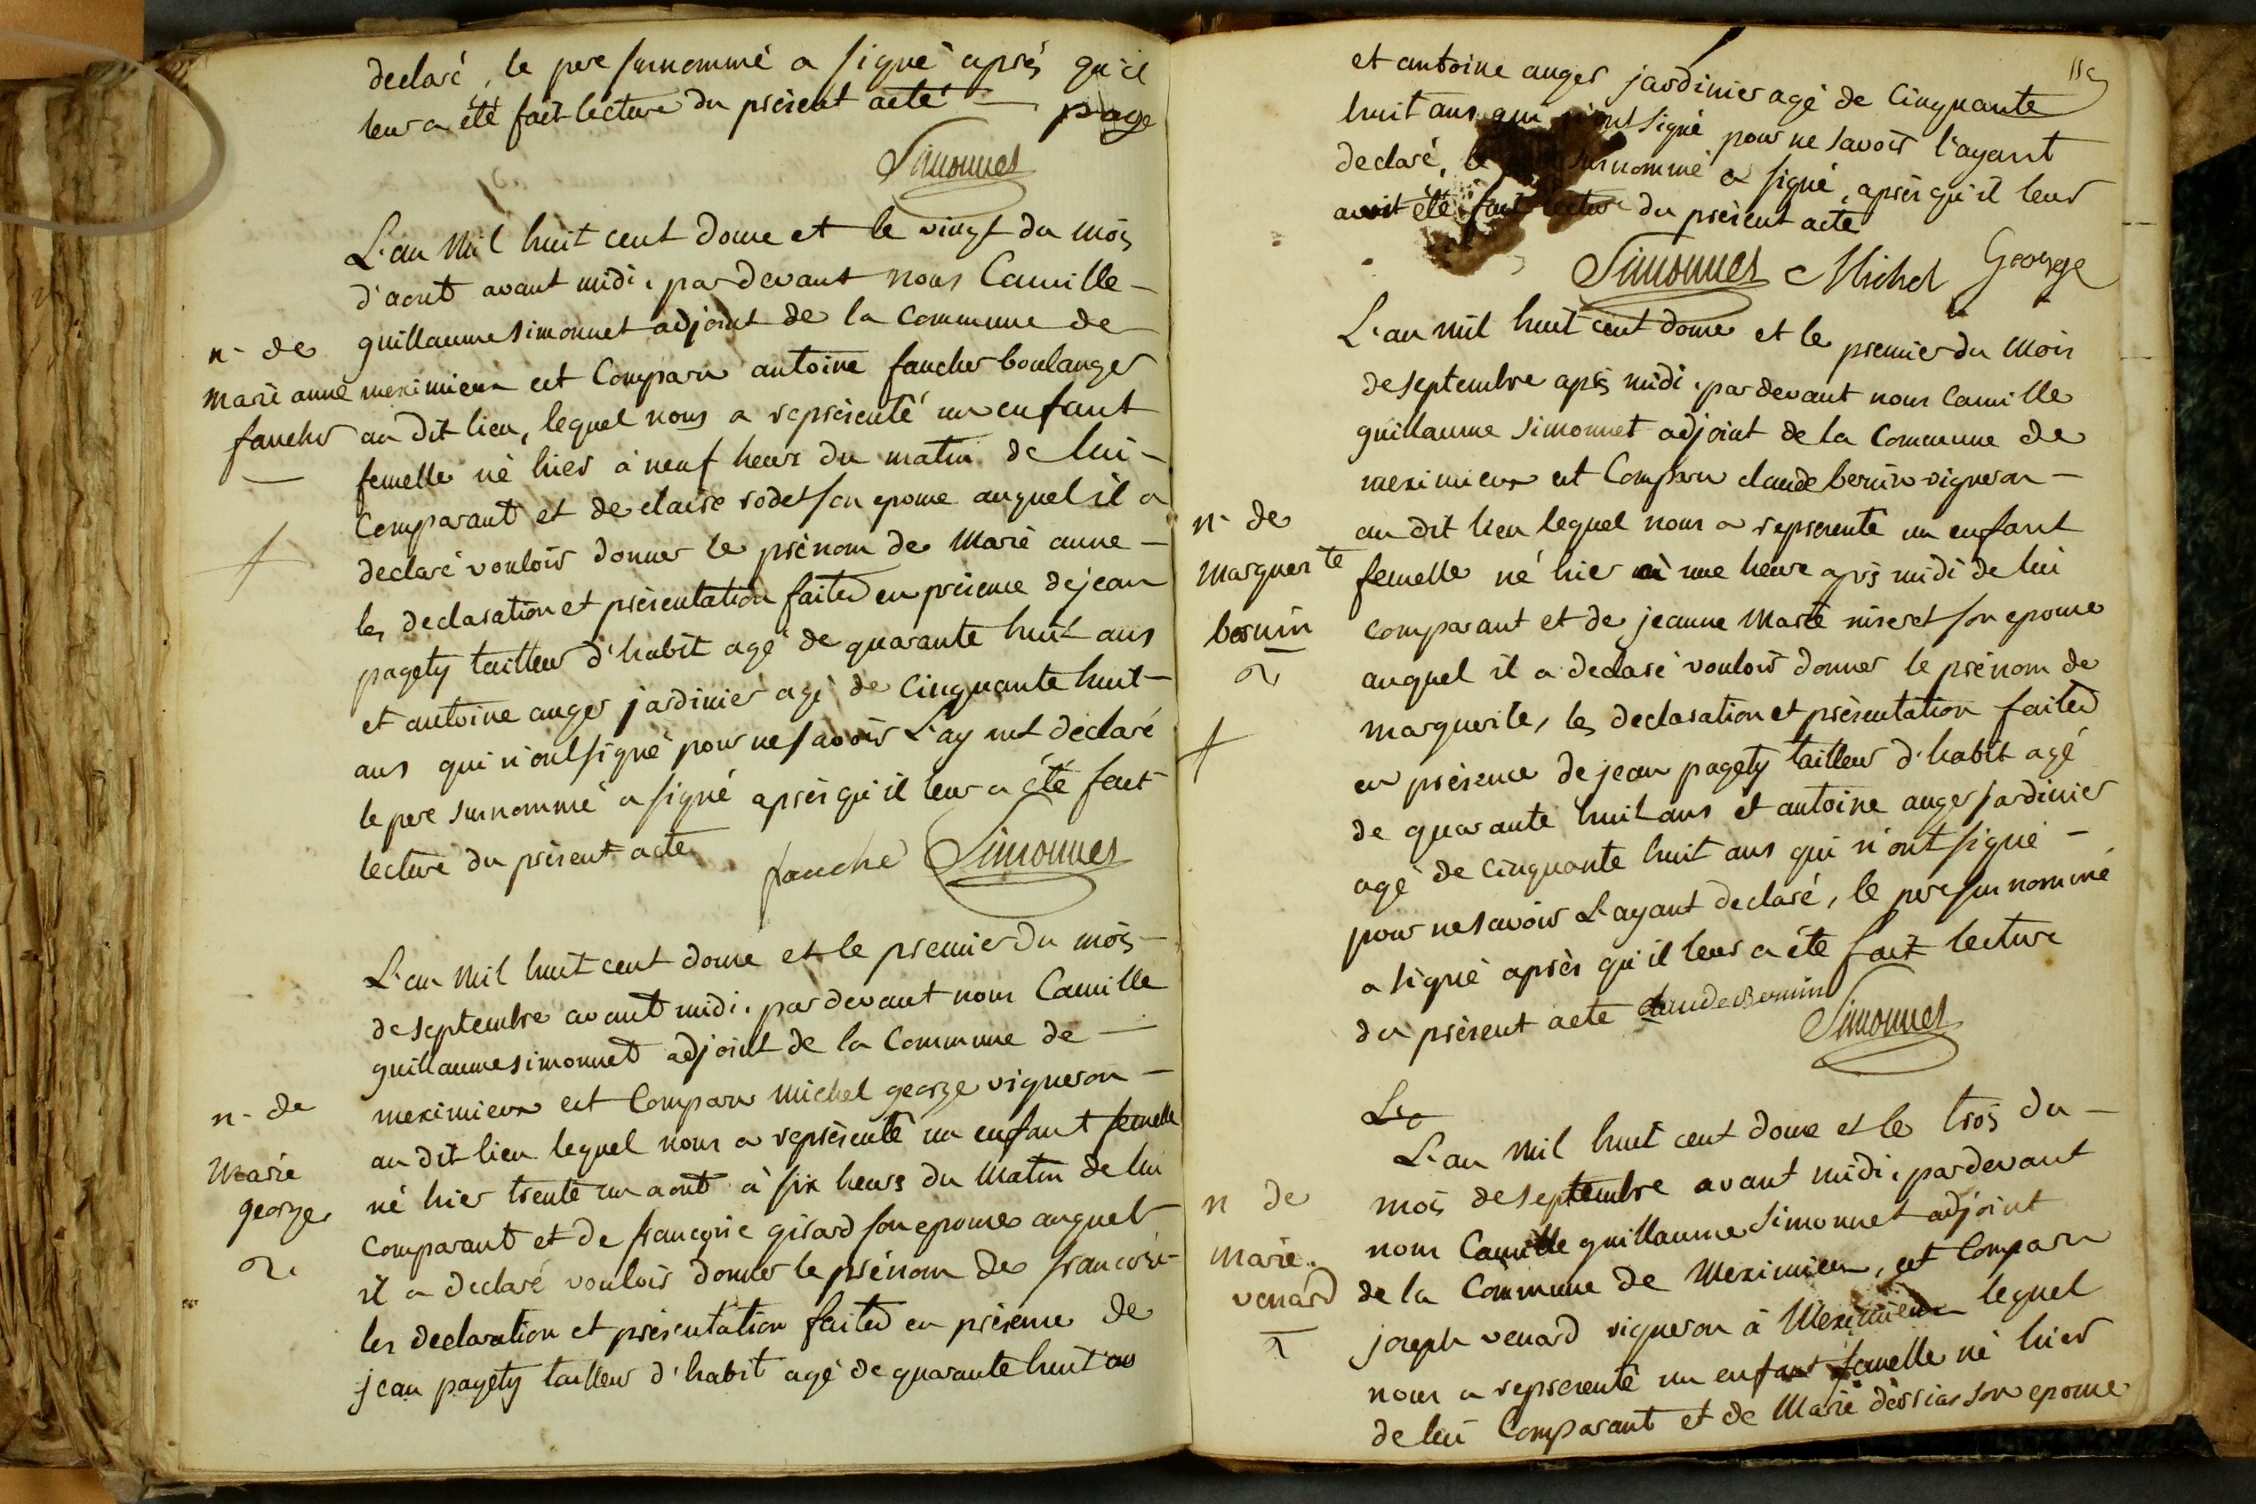 declaré, le pere surnommé a signé après qu'il
leur a été fait lecture du présent acte page
Simonnet
L'an mil huit cent douze et le vingt du mois
d'aout avant midi, par devant nous Camille
guillaume simonnet adjoint de la Commune de
n. de
marie anne
faucher
meximieux est Comparu antoine faucher boulanger
au dit lieu, lequel nous a représenté un enfant
femelle né hier à neuf heurs du matin de lui
Comparant et de claire rodet son epouse auquel il a
declaré vouloir donner le prénom de Marie anne
les declaration et présentation faites en présence de jean
pagety tailleur d'habit agé de quarante huit ans
et antoine auger jardinier agé de cinquante huit
ans qui n'ont signé pour ne savoir L'ayant déclaré
le pere surnommé a signé après qu'il leur a été fait
lecture du présent acte fauché Simonnet
L'an mil huit cent douze et le premier du mois
de septembre avant midi, par devant nous Camille
guillaume simonnet adjoint de la Commune de
n. de
Marie
george
meximieux est Comparu michel george vigneron
au dit lieu lequel nous a représenté un enfant femelle
né hier trente un aout à six heurs du matin de lui
Comparant et de françoise girard son epouse auquel
il a declaré vouloir donner le prénom de françoise
les declaration et présentation faites en présence de
jean pagety tailleur d'habit agé de quarante huit ans
et antoine auger jardinier agé de cinquante
huit ans qui n'ont signé pour ne savoir l'ayant
declaré, le surnommé a signé, après qu'il leur
avoit été fait lecture du présent acte
Simonnet Michel George
L'an mil huit cent douze et le premier du mois
de septembre après midi, par devant nous Camille
guillaume simonnet adjoint de la Commune de
meximieux est Comparu claude bernin vigneron
n. de
marguerite
bernin
au dit lieu lequel nous a representé un enfant
femelle né hier à une heure après midi de lui
comparant et de jeanne Marie son epouse
auquel il a declaré vouloir donner le prénom de
marguerite, les declaration et présentation faites
en présence de jean pagety tailleur d'habit agé
de quarante huit ans et antoine auger jardinier
agé de cinquante huit ans qui n'ont signé
pour ne savoir L'ayant declaré, le pere surnommé
a signé après qu'il leur a été fait lecture
du présent acte claude Bernin
Simonnet
L'a
L'an mil huit cent douze et le trois du
n de
marie
venard
mois de septembre avant midi, par devant
nous Camille guillaume Simonnet adjoint
de la Commune de Meximieux, est Comparu
joseph venard vigneron à Meximieux lequel
nous a representé un enfant femelle né hier
de lui Comparant et de Marie son epouse